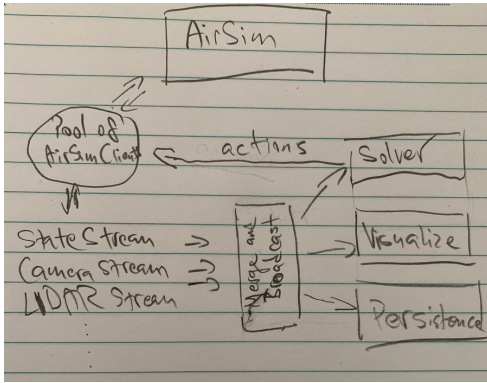 AirSim
Pool of
AirSim Clients
actions
Solver
State Stream
Camera Stream
LIDAR Stream
Merge and
Broadcast
Visualize
Persistence